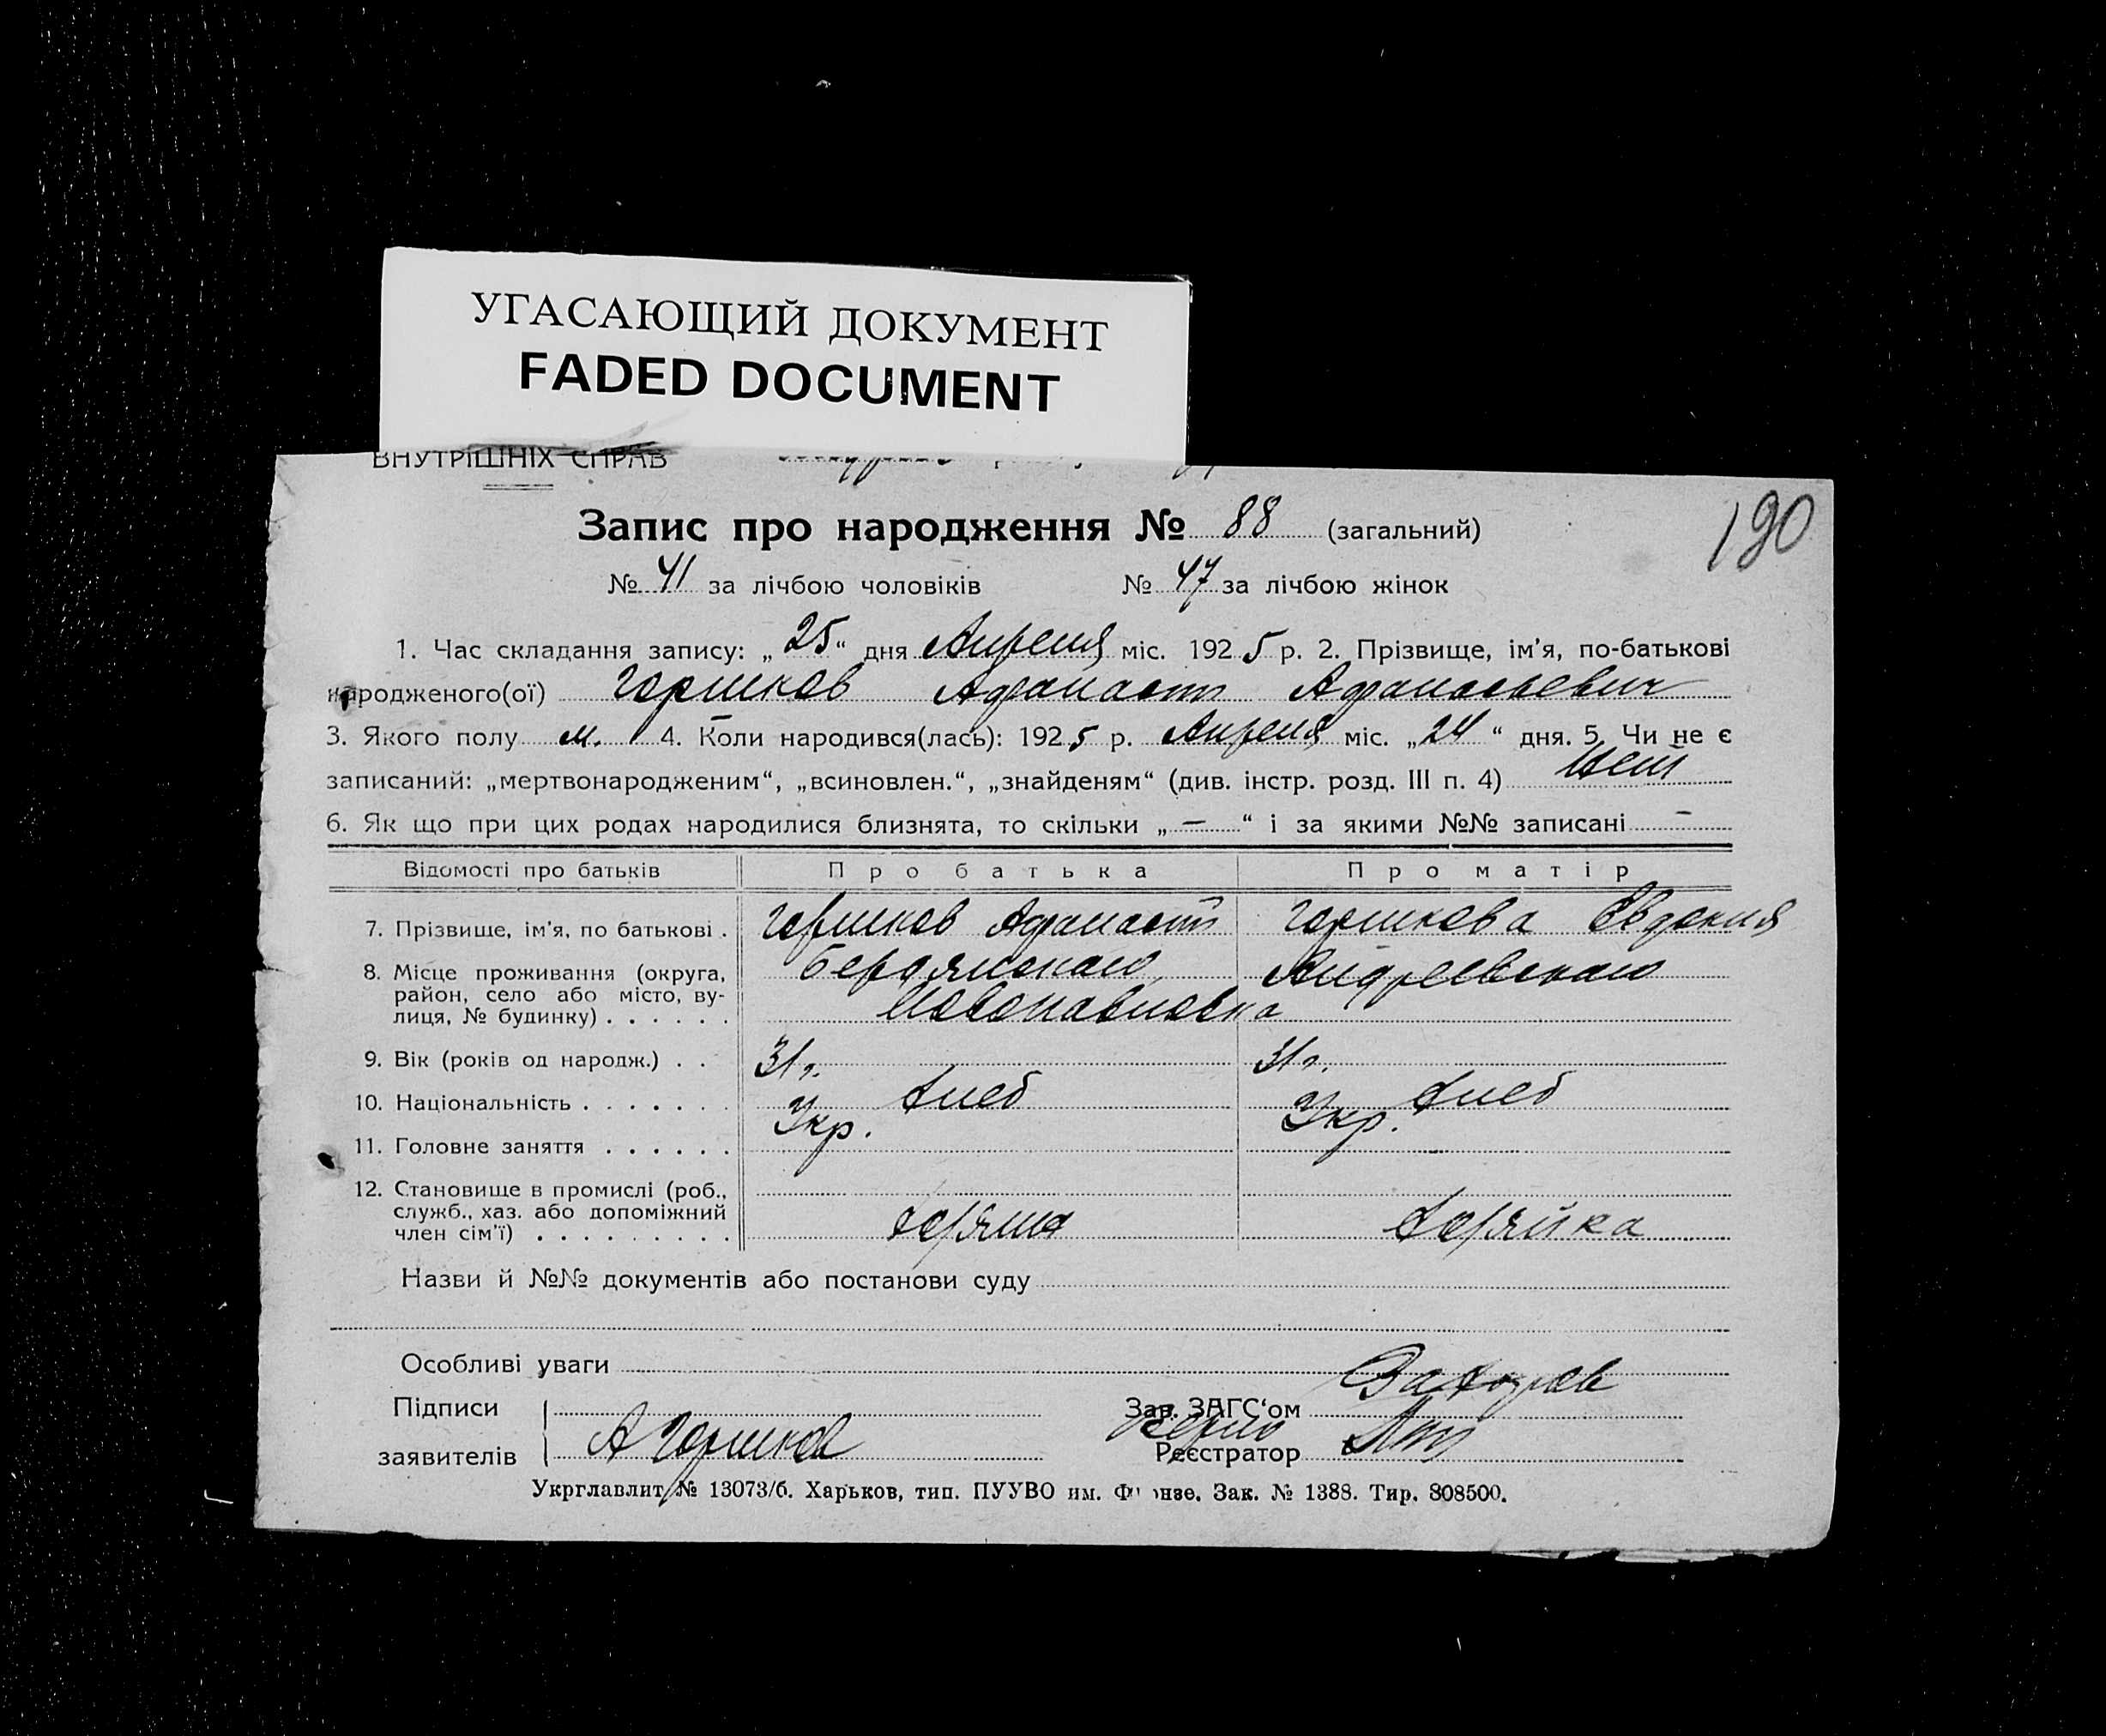 УГАСАЮЩИЙ ДОКУМЕНТ
FADED DOCUMENT
ВНУТРІШНІХ СПРАВ
190
Запис про народження № 88 (загальний)
№ 41 за лічбою чоловіків № 47 за лічбою жінок
1. Час складання запису: „25“ дня Апреля міс. 1925 р. 2. Прізвище, ім'я, по-батькові
народженого(ої) Горшков Афанасий Афанасьевич
3. Якого полу м. 4. Коли народився(лась): 1925 р. Апреля міс. „24“ дня. 5. Чи не є
записаний: „мертвонародженим“, „всиновлен.“, „знайденям“ (див. інстр. розд. III п. 4) Нет
6. Як що при цих родах народилися близнята, то скільки „—“ і за якими №№ записані —
Відомості про батьків Про батька Про матір
7. Прізвище, ім'я, по батькові . Горшков Афанасий Горшкова Евдокия
8. Місце проживання (округа, Бердянского Андреевского
район, село або місто, ву-
лиця, № будинку) . . . . . . Новопавловка
9. Вік (років од народж.) . . 31 г. 31 г.
10. Національність . . . . . . . Укр. Укр.
11. Головне заняття . . . . . .
12. Становище в промислі (роб.,
служб., хаз. або допоміжний
член сім'ї) . . . . . . . . .
Назви й №№ документів або постанови суду
Особливі уваги
Підписи Зав. ЗАГС'ом
заявителів А Горшков Реєстратор
Укрглавлит № 13073/б. Харьков, тип. ПУУВО им. Зак. № 1388. Тир. 808500.